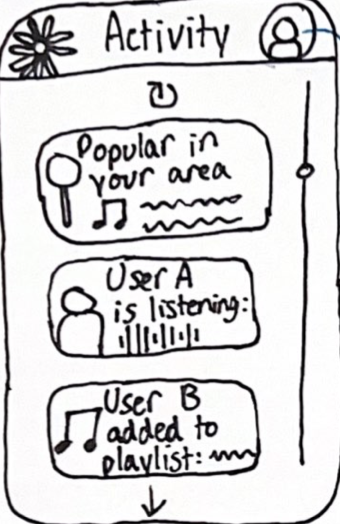 Activity
Popular in
your area
User A
is listening:
User B
added to
playlist: